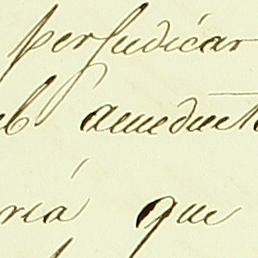 perjudicar
el acueducto
ria que